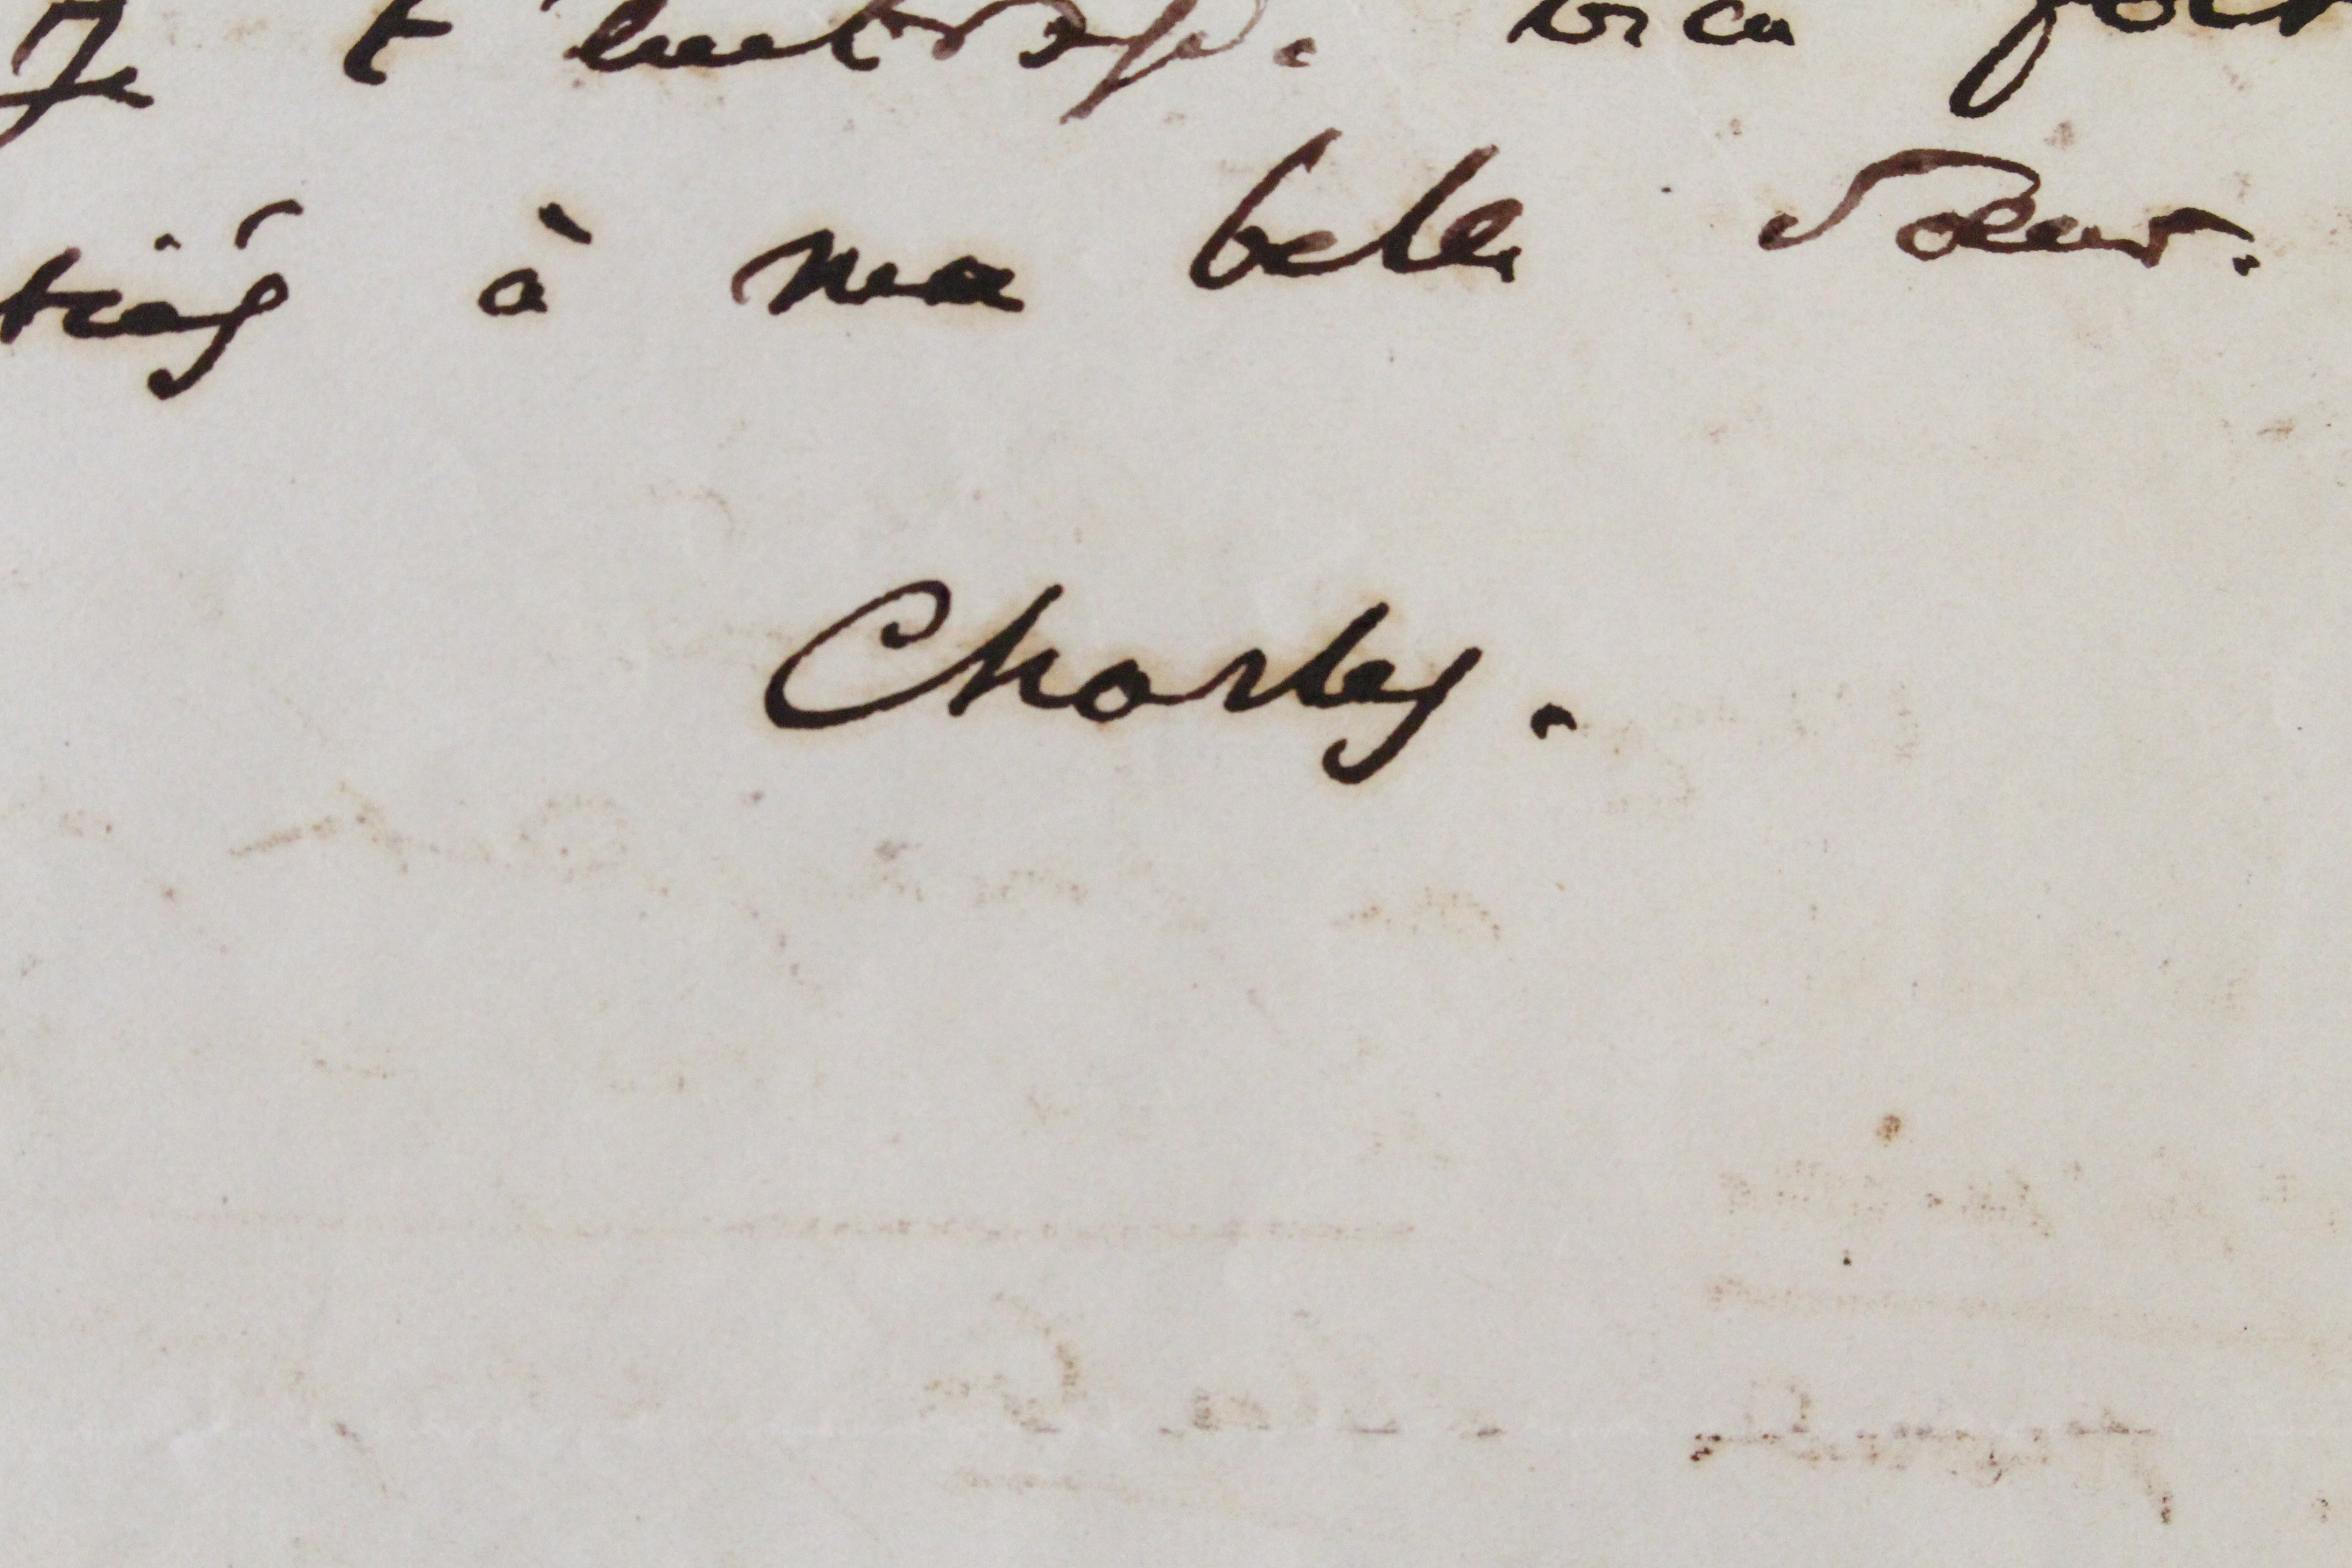 Je t'embrasse bien fort
tiés à ma belle Sœur.
Charles.